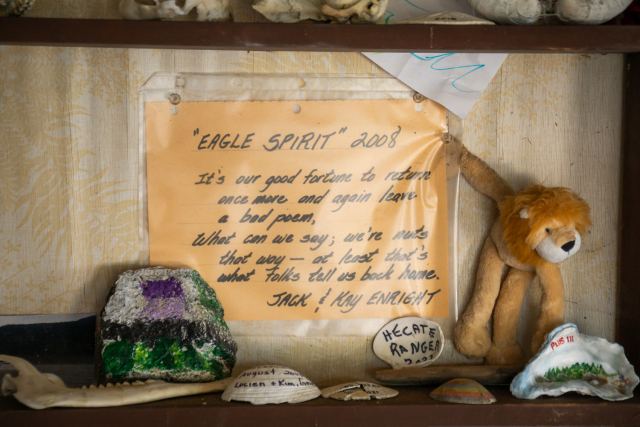 "EAGLE SPIRIT" 2008
It's our good fortune to return
once more and again leave
a bad poem,
What can we say; we're nuts
that way — at least that's
what folks tell us back home.
JACK & KAY ENRIGHT
HECATE
RANGER
PUB III
August
Lucien + Kim,